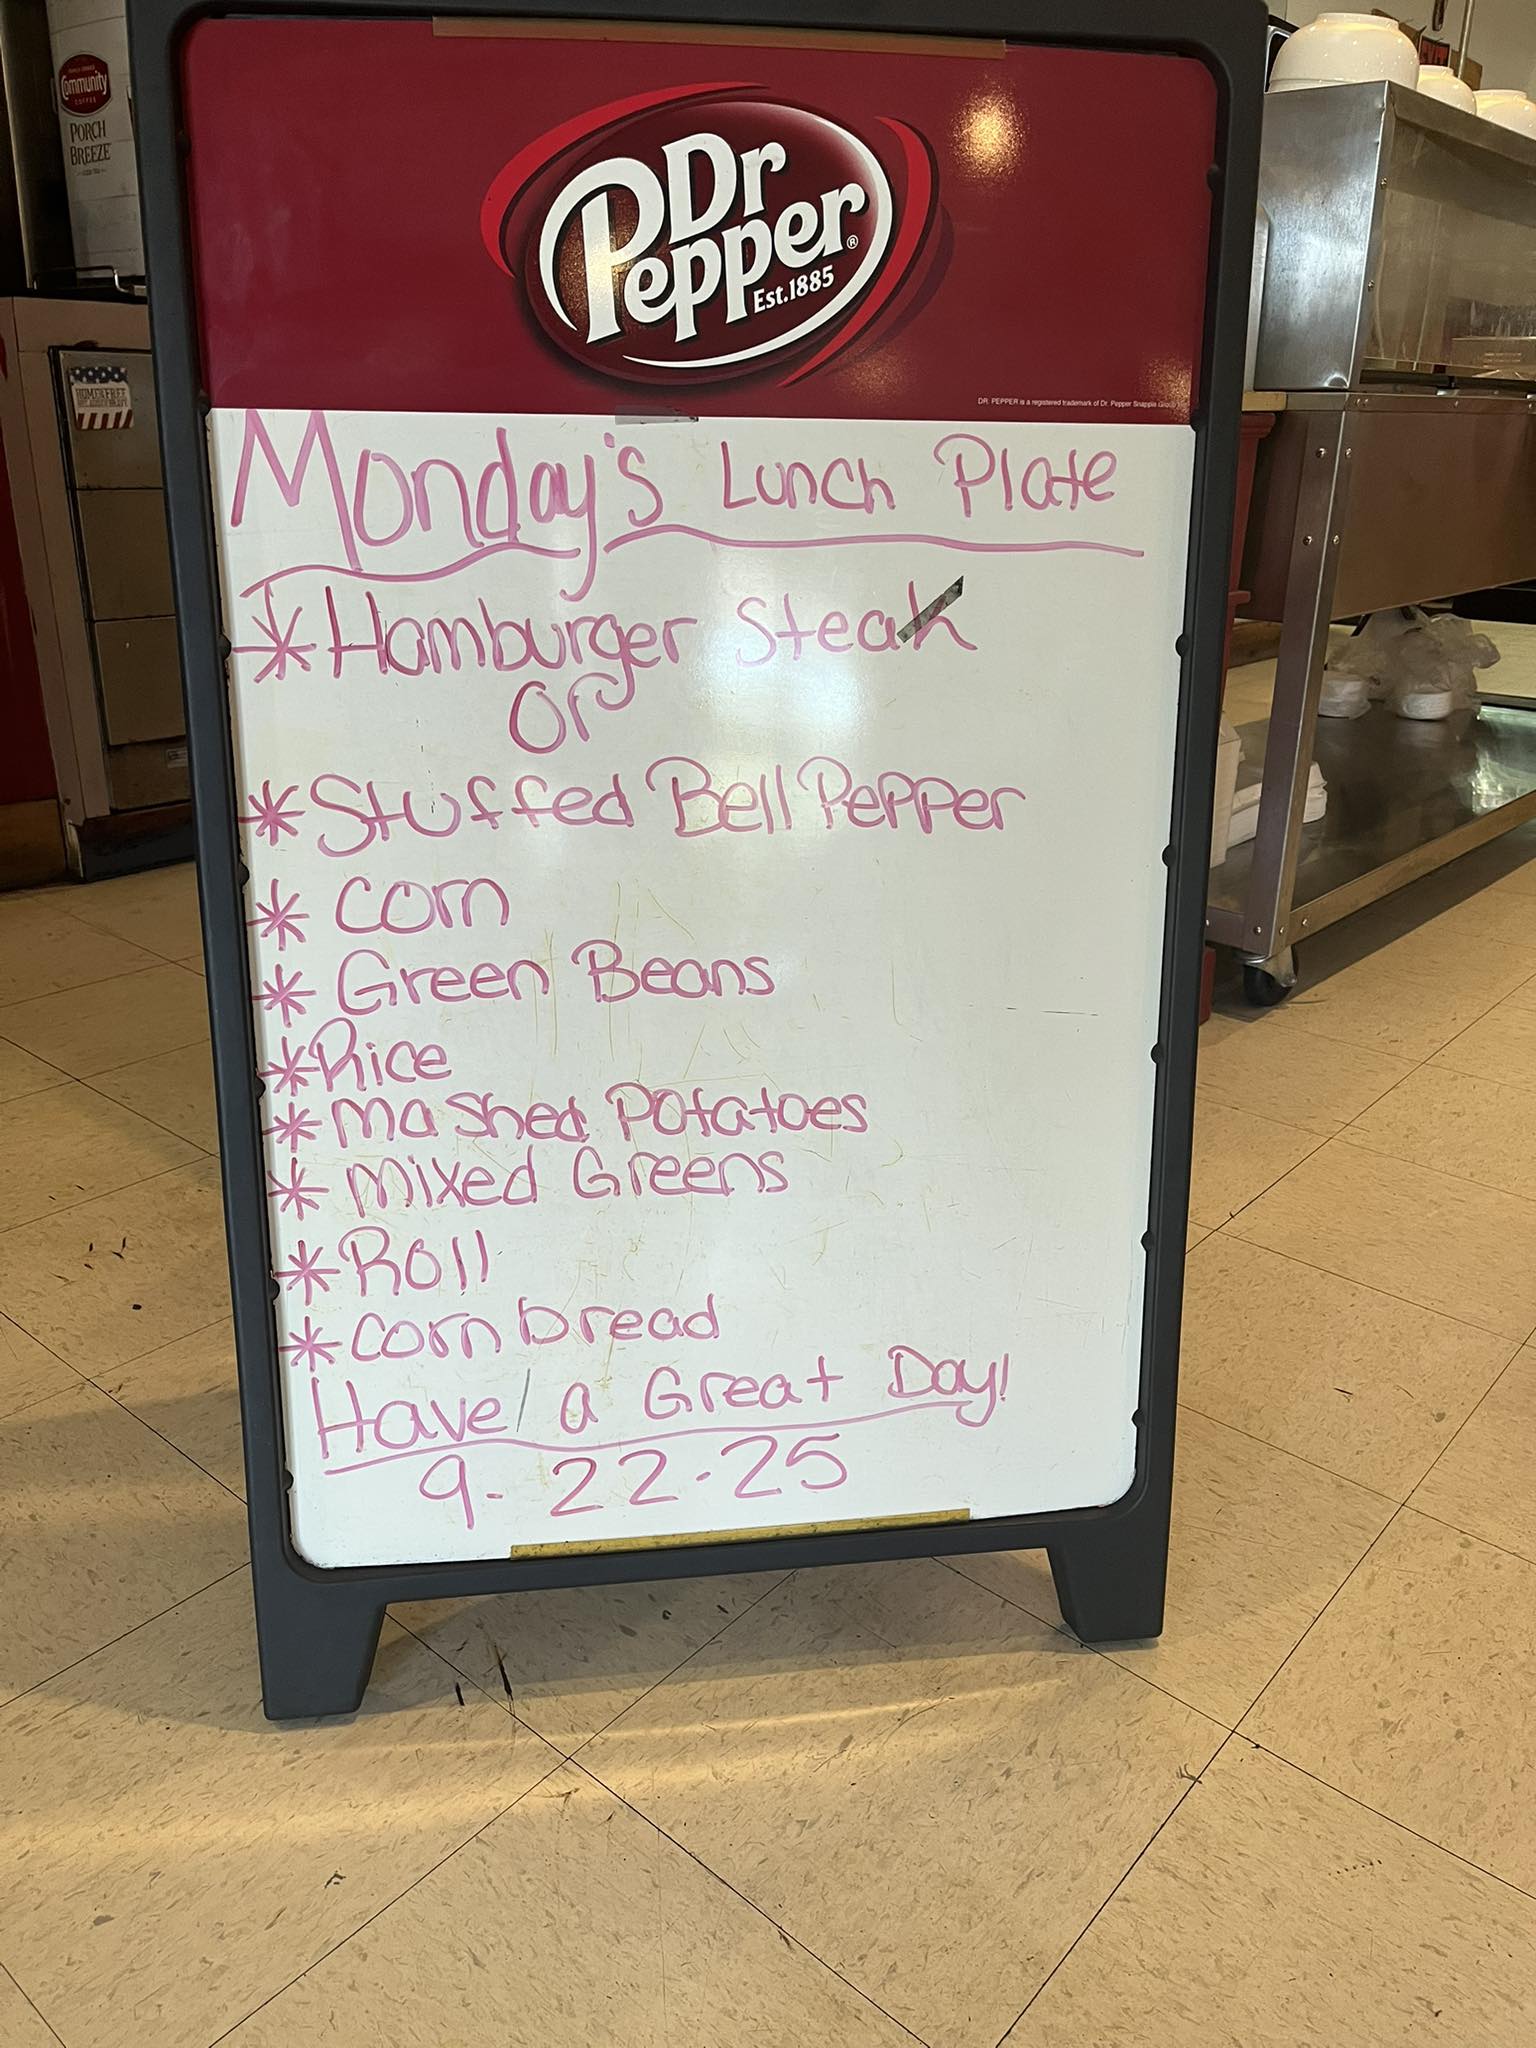 Community
COFFEE
PORCH
BREEZE
Dr
Pepper®
Est.1885
DR PEPPER is a registered trademark of Dr. Pepper Snapple Group
Monday's Lunch Plate
* Hamburger Steak
or
* Stuffed Bell Pepper
* Corn
* Green Beans
* Rice
* Mashed Potatoes
* Mixed Greens
* Roll
* Cornbread
Have a Great Day!
9-22-25